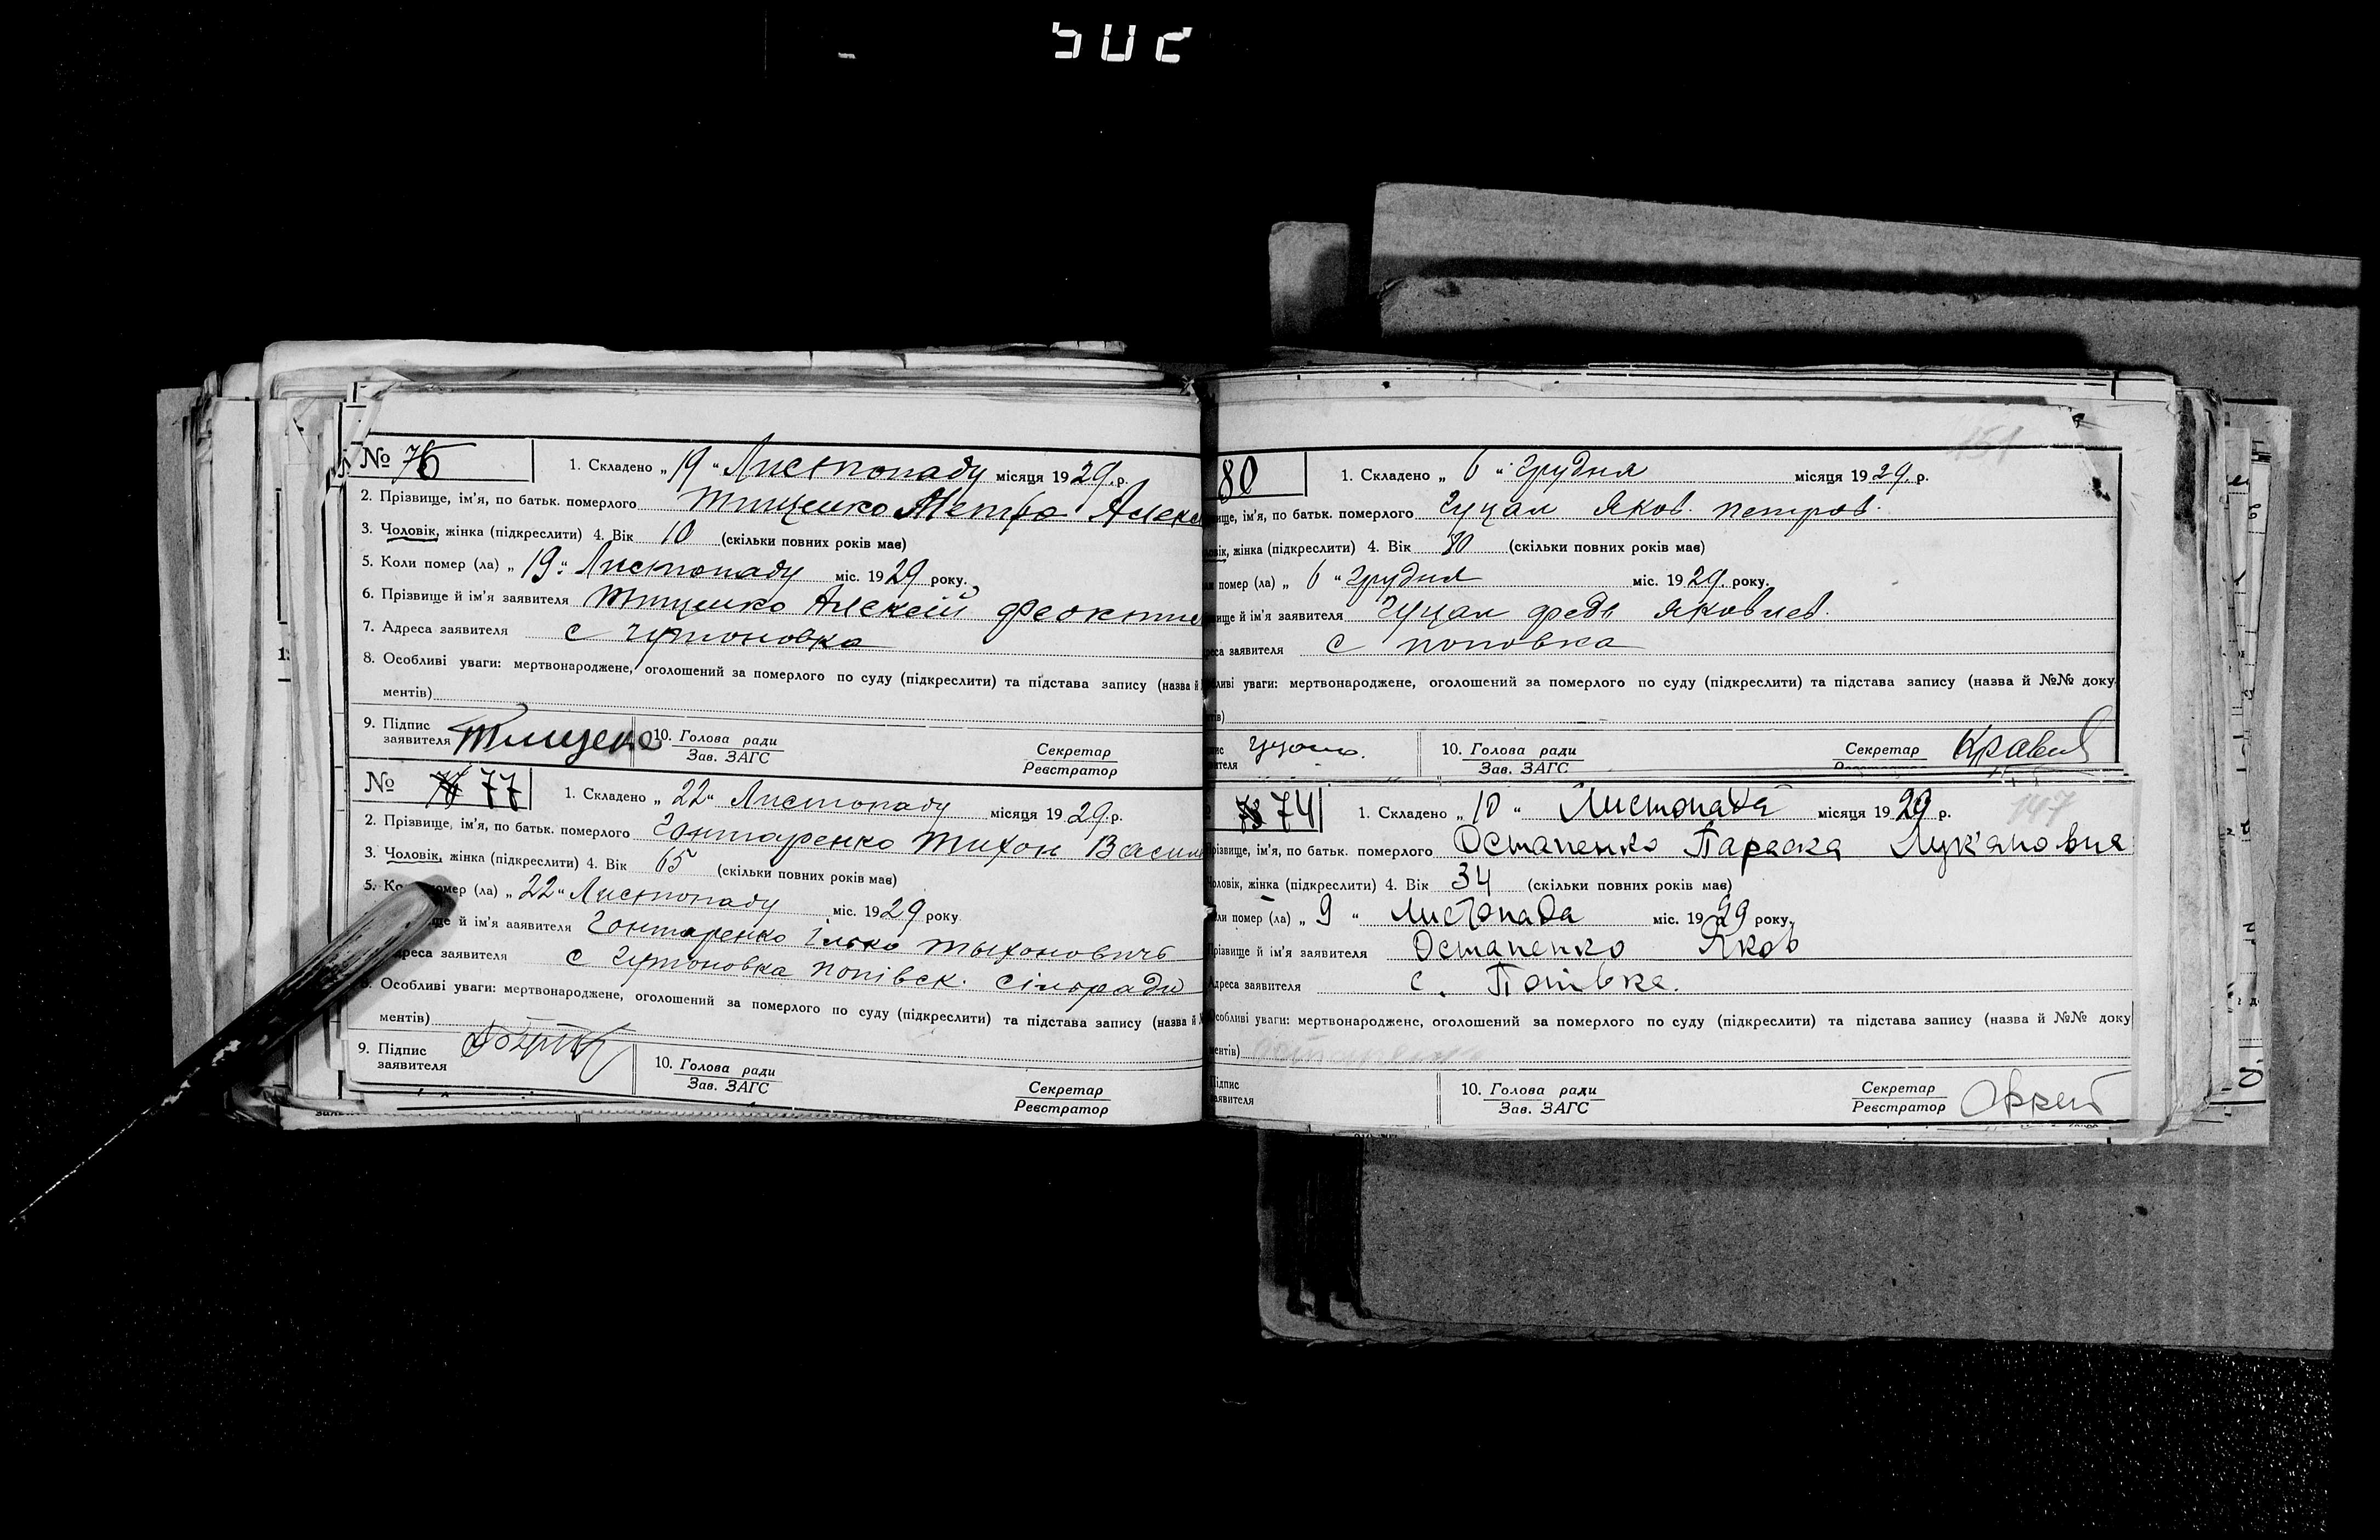 502
№ 76 1. Складено „19“ Листопаду місяця 1929 р.
2. Прізвище, ім'я, по батьк. померлого Тищенко Алекс
3. Чоловік, жінка (підкреслити) 4. Вік 10 (скільки повних років має)
5. Коли помер (ла) „19“ Листопаду міс. 1929 року.
6. Прізвище й ім'я заявителя Тищенко Алексій Феокти
7. Адреса заявителя с Гутоновка
8. Особливі уваги: мертвонароджене, оголошений за померлого по суду (підкреслити) та підстава запису (назва й
ментів)
9. Підпис заявителя Тищенко 10. Голова ради Зав. ЗАГС Секретар Реєстратор
№ 77 1. Складено „22“ Листопаду місяця 1929 р.
2. Прізвище, ім'я, по батьк. померлого Гонтаренко Тихон Васил
3. Чоловік, жінка (підкреслити) 4. Вік 65 (скільки повних років має)
5. Ко помер (ла) „22“ Листопаду міс. 1929 року
ще й ім'я заявителя Гонтаренко Ілько Тыхоновичь
дреса заявителя с Гутоновка попівск. сільради
8. Особливі уваги: мертвонароджене, оголошений за померлого по суду (підкреслити) та підстава запису (назва й
ментів)
9. Підпис заявителя 10. Голова ради Зав. ЗАГС Секретар Реєстратор
80 1. Складено „6“ Грудня місяця 1929 р.
151
вище, ім'я, по батьк. померлого Гуцал Яков. Петров.
ловік, жінка (підкреслити) 4. Вік 80 (скільки повних років має)
ли помер (ла) „6“ Грудня міс. 1929 року.
вище й ім'я заявителя Гуцал Федь Яковлев.
реса заявителя с поповка
ливі уваги: мертвонароджене, оголошений за померлого по суду (підкреслити) та підстава запису (назва й №№ доку
тів)
пис вителя Гуцало. 10. Голова ради Зав. ЗАГС Секретар
74 1. Складено „10“ Листопада місяця 1929 р.
147
різвище, ім'я, по батьк. померлого Остапенко Параска Лук'яновна
оловік, жінка (підкреслити) 4. Вік 34 (скільки повних років має)
ли помер (ла) „9“ Листопада міс. 1929 року.
різвище й ім'я заявителя Остапенко Яков
Адреса заявителя с. Попівка.
Особливі уваги: мертвонароджене, оголошений за померлого по суду (підкреслити) та підстава запису (назва й №№ доку
ментів)
Підпис заявителя 10. Голова ради Зав. ЗАГС Секретар Реєстратор